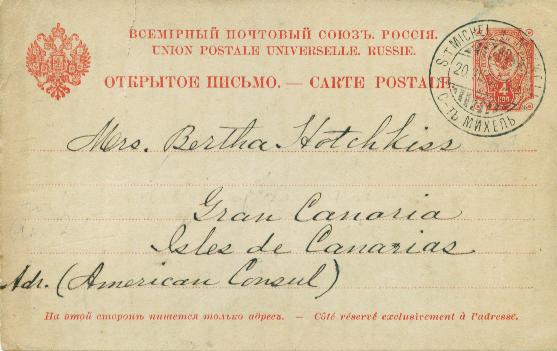 ВСЕМІРНЫЙ ПОЧТОВЫЙ СОЮЗЪ. РОССІЯ.
UNION POSTALE UNIVERSELLE. RUSSIE.
ОТКРЫТОЕ ПИСЬМО. — CARTE POSTALE
ST MICHEL
20
С-ТЪ МИХЕЛЬ
4
КОП
Mrs. Bertha Hotchkiss
Gran Canaria
Isles de Canarias
Adr. (American Consul)
На этой сторонѣ пишется только адресъ. — Côté réservé exclusivement à l'adresse.